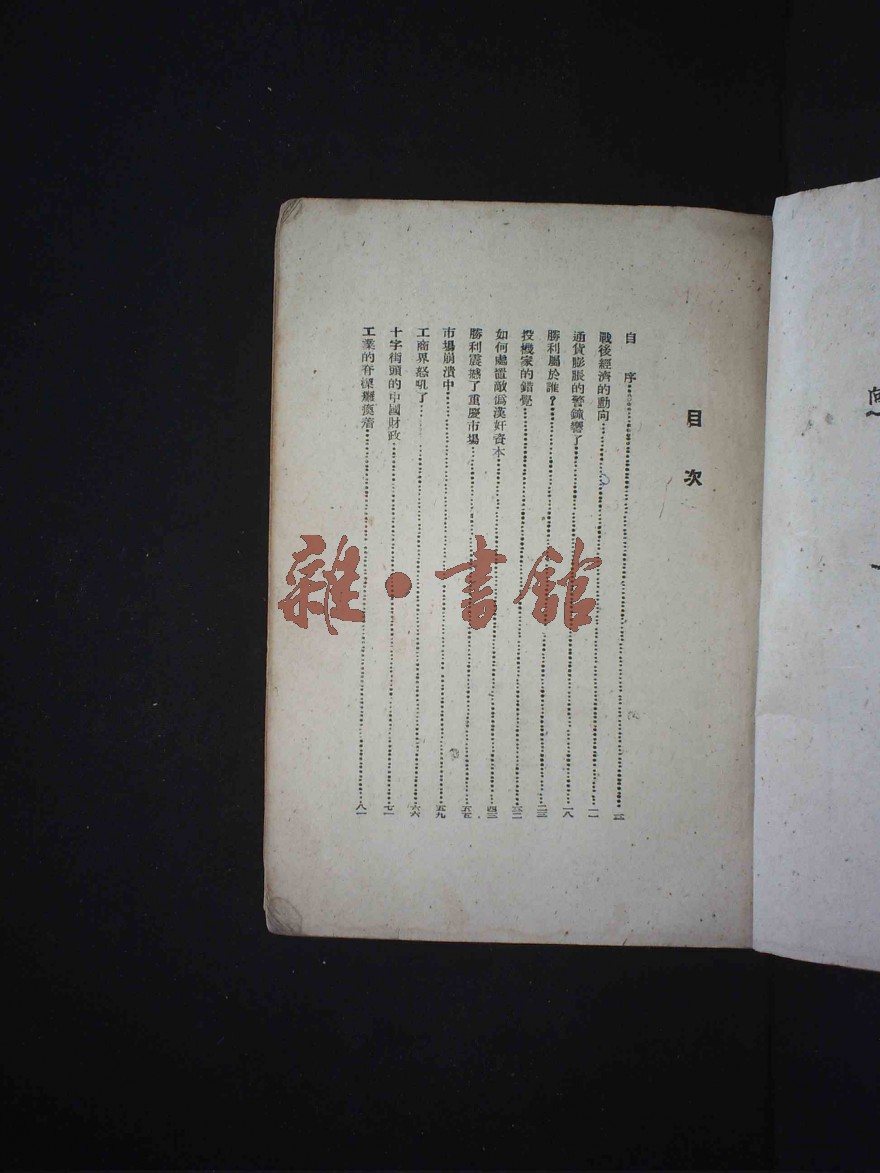 目次
自序……三
戰後經濟的動向……一一
通貨膨脹的警鐘響了……一八
勝利屬於誰？……二三
投機家的錯覺……三二
如何處置敵偽漢奸資本……四三
勝利震撼了重慶市場……五五
市場崩潰中……五九
工商界怒吼了……六六
十字街頭的中國財政……七一
工業的脊梁癱瘓着……八一
雜·書館